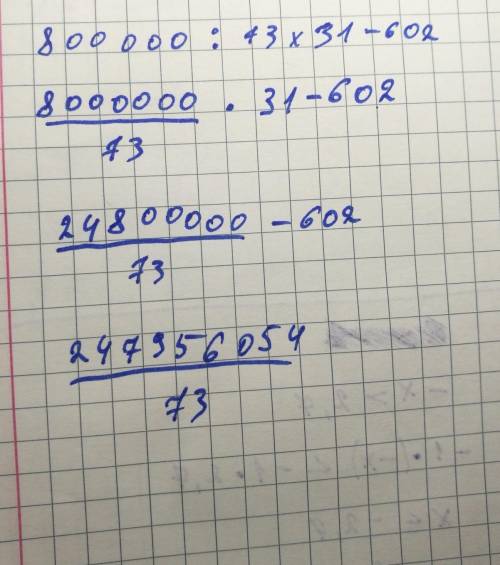 800 000 : 73 x 31 - 602
8000000 · 31 - 602
73
24800000 - 602
73
247956054
73